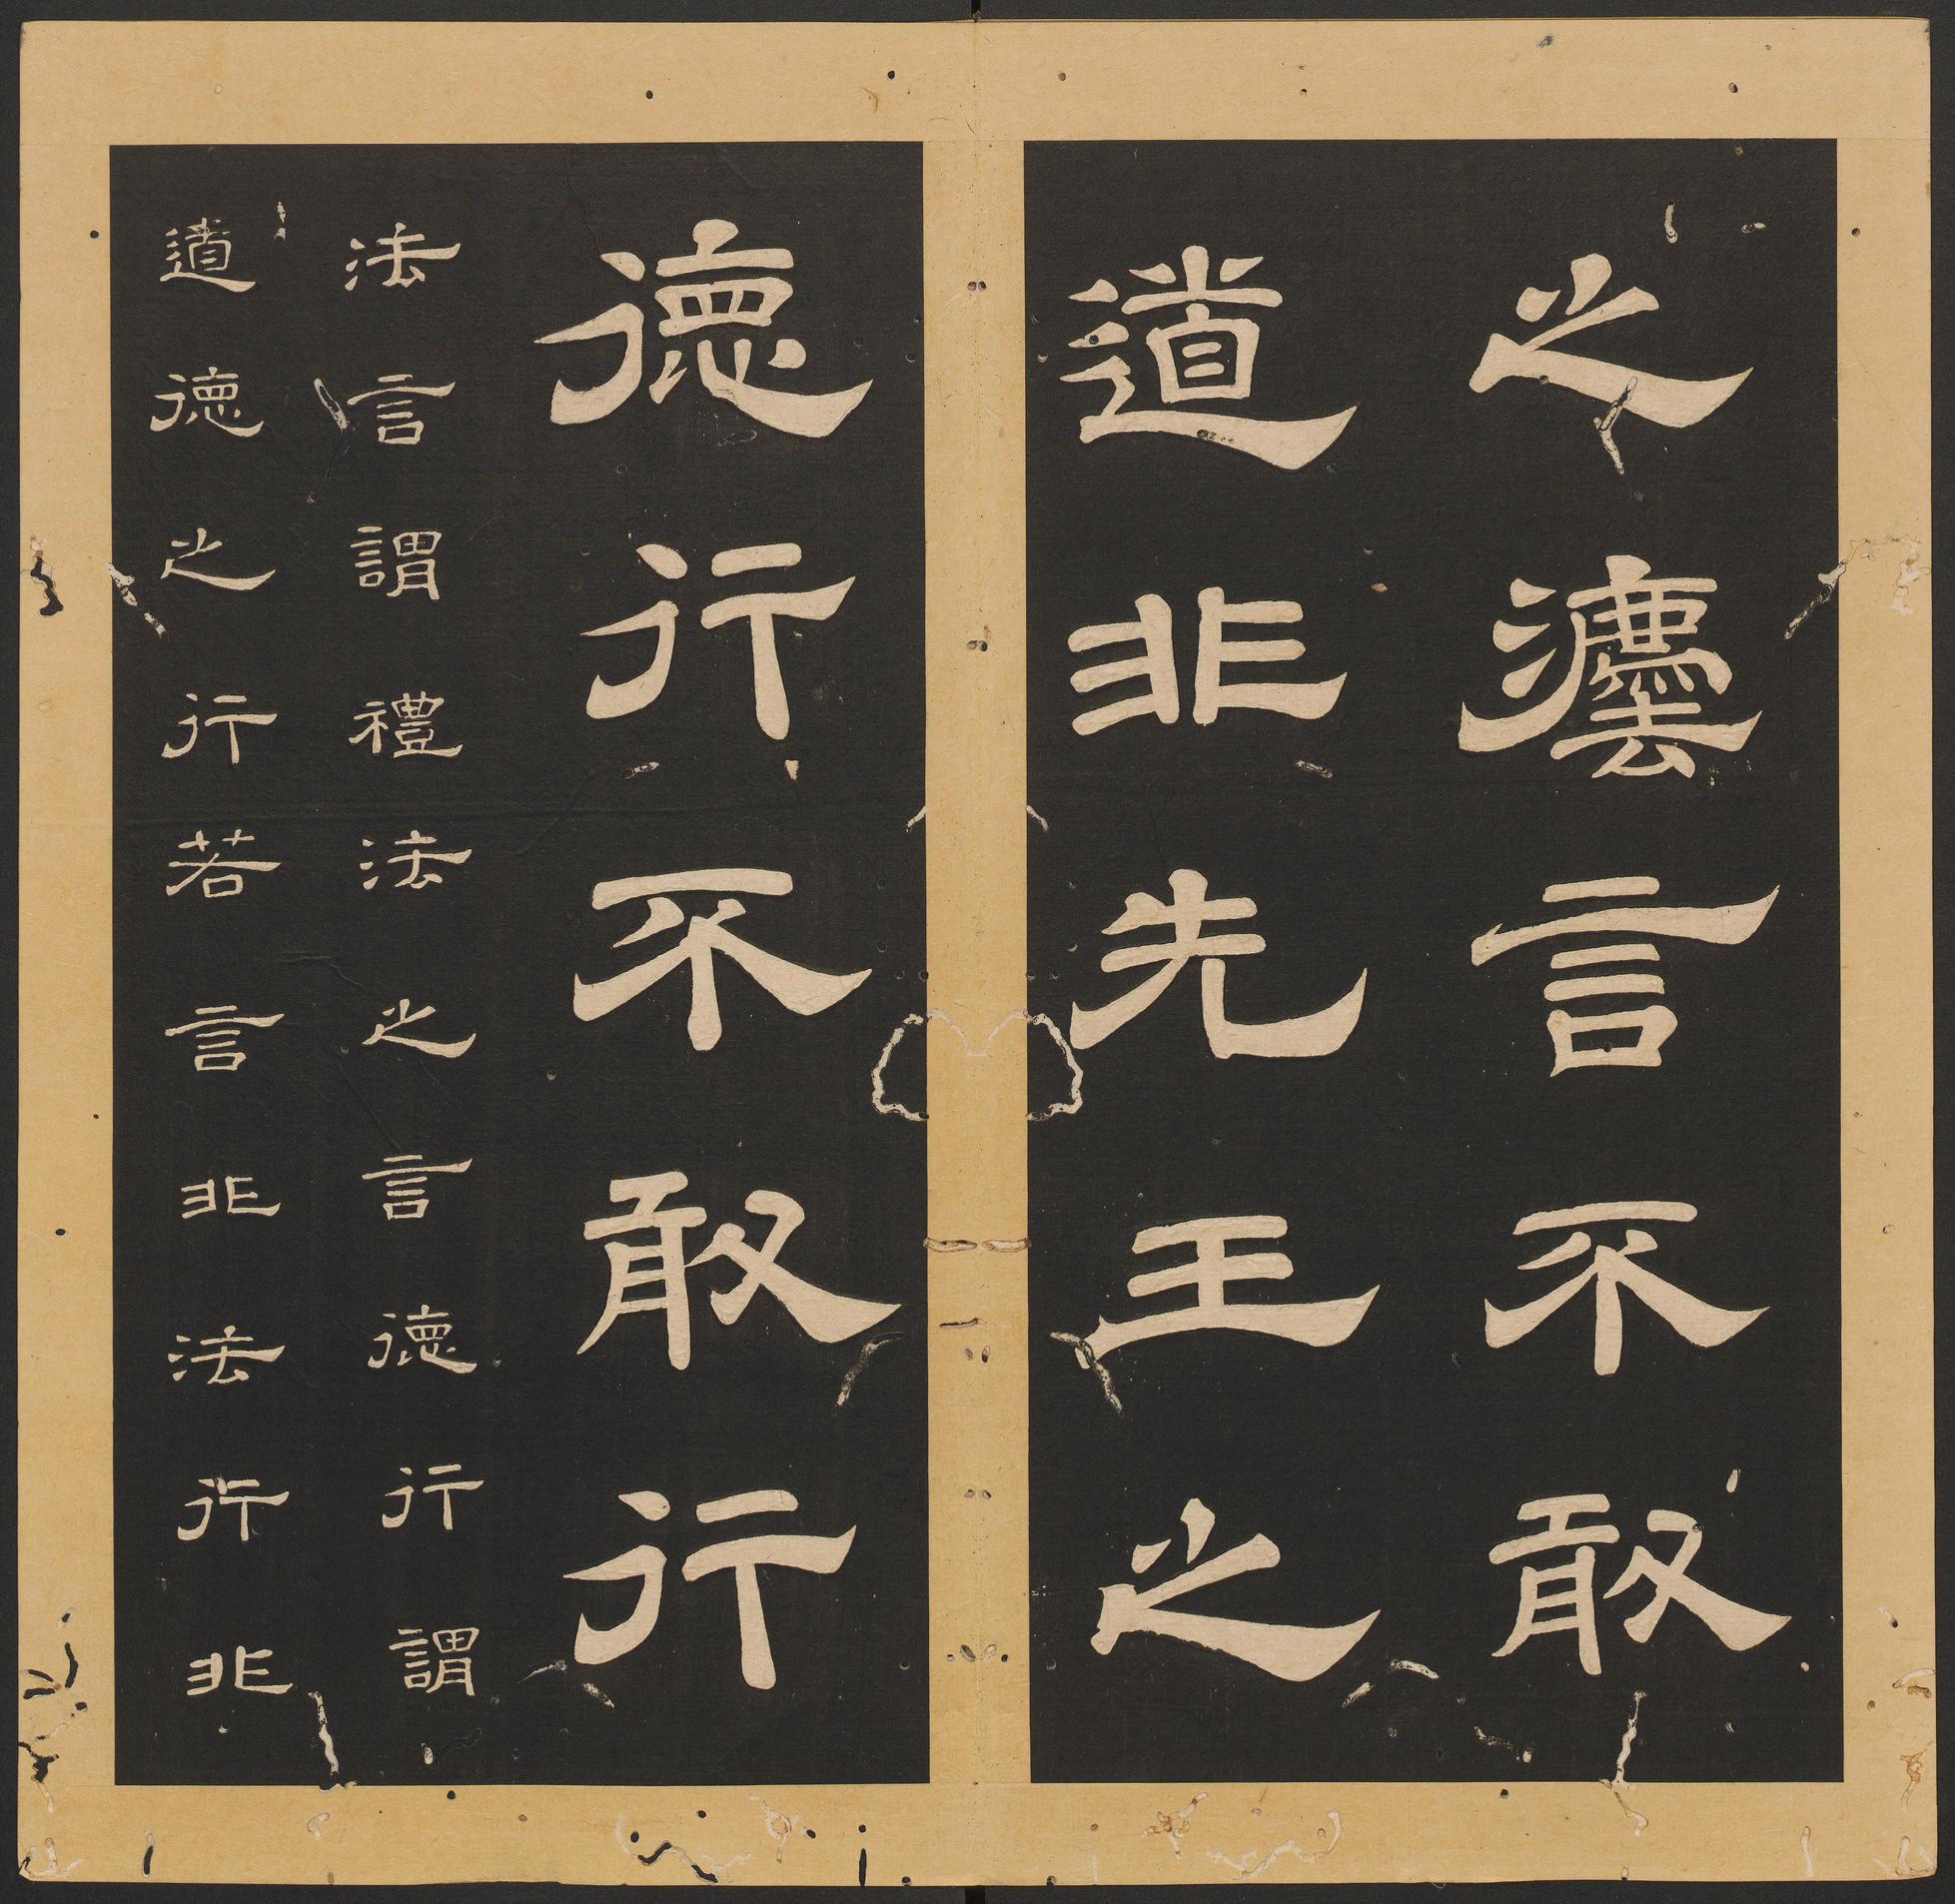 之灋言不敢
道非先王之
德行不敢行
法言謂禮法之言德行謂
道德之行若言非法行非